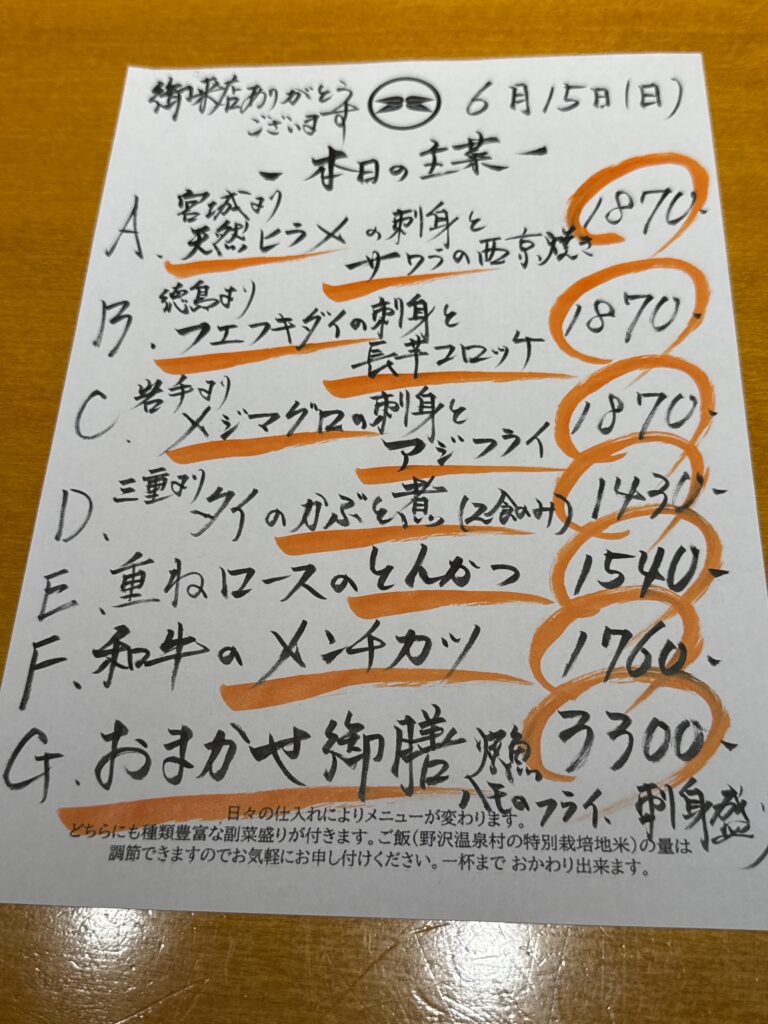 御来店ありがとう
ございます
6月15日(日)
- 本日の主菜 -
A. 宮城より
天然ヒラメの刺身と
サワラの西京焼き
1870-
B. 徳島より
フエフキダイの刺身と
長芋コロッケ
1870-
C. 岩手より
メジマグロの刺身と
アジフライ
1870-
D. 三重より タイのかぶと煮(2食のみ) 1430-
E. 重ねロースのとんかつ 1540-
F. 和牛のメンチカツ 1760-
G. おまかせ御膳 3300-
ハモのフライ、刺身盛
日々の仕入れによりメニューが変わります。
どちらにも種類豊富な副菜盛りが付きます。ご飯(野沢温泉村の特別栽培地米)の量は
調節できますのでお気軽にお申し付けください。一杯まで おかわり出来ます。